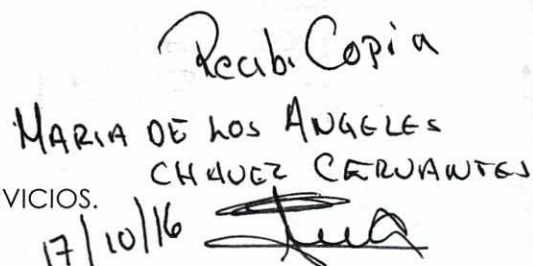 Recibi Copia
MARIA DE LOS ANGELES
CHAVEZ CERVANTES
VICIOS.
17/10/16